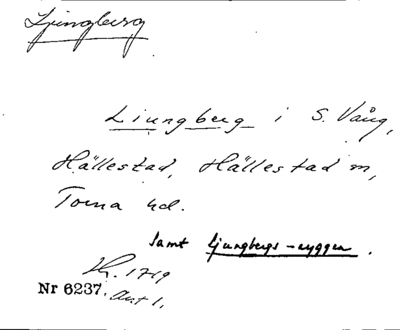 Ljungberg
Liungberg i S. Vång,
Hällestad, Hällestad m,
Torna hd.
samt ljungbergs-ryggen.
1719
Nr 6237. Avt 1.